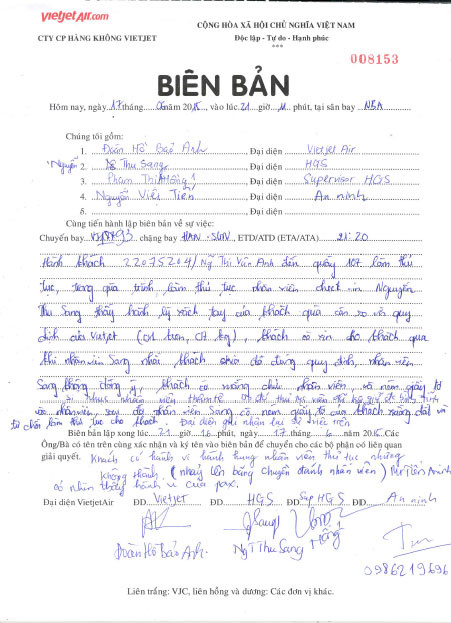 vietjetAir.com
CỘNG HÒA XÃ HỘI CHỦ NGHĨA VIỆT NAM
CTY CP HÀNG KHÔNG VIETJET
Độc lập - Tự do - Hạnh phúc
***
008153
BIÊN BẢN
Hôm nay, ngày 17 tháng 06 năm 2015, vào lúc 21 giờ phút, tại sân bay NBA
Chúng tôi gồm:
1. Đoàn Hồ Bảo Anh, Đại diện Vietjet Air
Nguyễn 2. Thu Sang, Đại diện HGS
3. Phạm Thị Hồng, Đại diện Supervisor HGS
4. Nguyễn Việt Tiến, Đại diện An ninh
5. Đại diện
Cùng tiến hành lập biên bản về sự việc:
Chuyến bay chặng bay HAN - SGN, ETD/ATD (ETA/ATA) 21:20
Hành khách 22075204/ Ng Thị Vân Anh đến quầy 107 làm thủ
tục, trong quá trình làm thủ tục nhân viên check in Nguyễn
Thu Sang thấy hành lý xách tay của khách quá cân so với quy
định của Vietjet khách có xin cho khách qua
nhân viên Sang khách chưa đó đúng quy định, nhân viên
Sang không đồng ý, khách có mắng chửi nhân viên, và ném giấy tờ
vào nhân viên, sau đó nhân viên Sang có ném giấy tờ của khách xuống đất và
từ chối làm thủ tục cho khách. Đại diện
Biên bản lập xong lúc 21 giờ 16 phút, ngày 17 tháng 6 năm 2015 Các
Ông/Bà có tên trên cùng xác nhận và ký tên vào biên bản để chuyển cho các bộ phận có liên quan
giải quyết. Khách có hành vi hành hung nhân viên thủ tục nhưng
không thành (nhảy lên băng chuyền đánh nhân viên)
có nhìn thấy hành vi của pax.
Đại diện VietjetAir ĐD Vietjet ĐD HGS ĐD Sup HGS ĐD An ninh
Sang Hồng
Đoàn Hồ Bảo Anh. Ng T Thu Sang
0986219696
Liên trắng: VJC, liên hồng và dương: Các đơn vị khác.